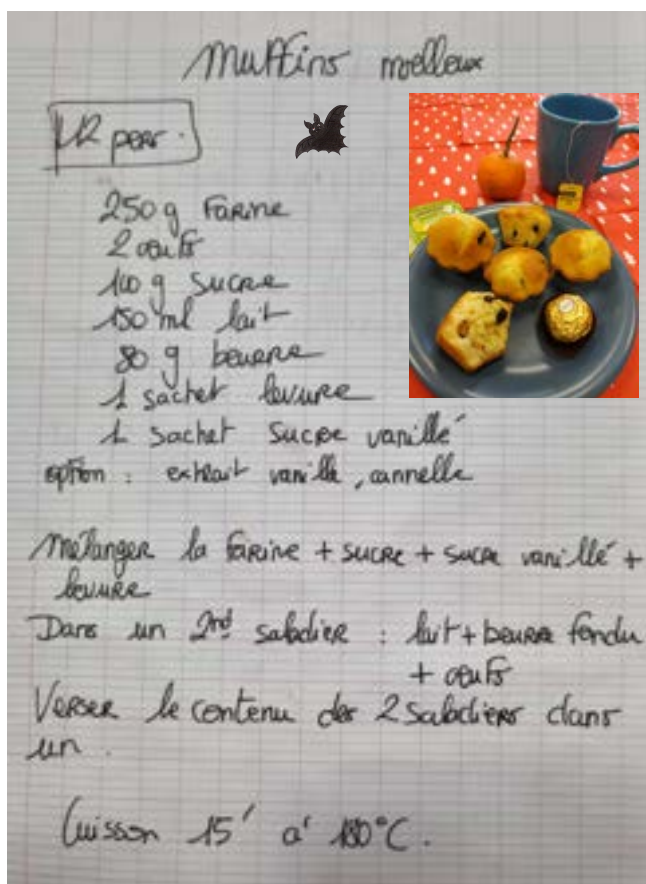 Muffins moelleux
12 pers.
250 g Farine
2 oeufs
100 g sucre
150 ml lait
80 g beurre
1 sachet levure
1 sachet sucre vanillé
option : extrait vanille, cannelle
Mélanger la farine + sucre + sucre vanillé +
levure
Dans un 2nd saladier : lait + beurre fondu
+ oeufs
Verser le contenu des 2 saladiers dans
un.
Cuisson 15' à 180°C.